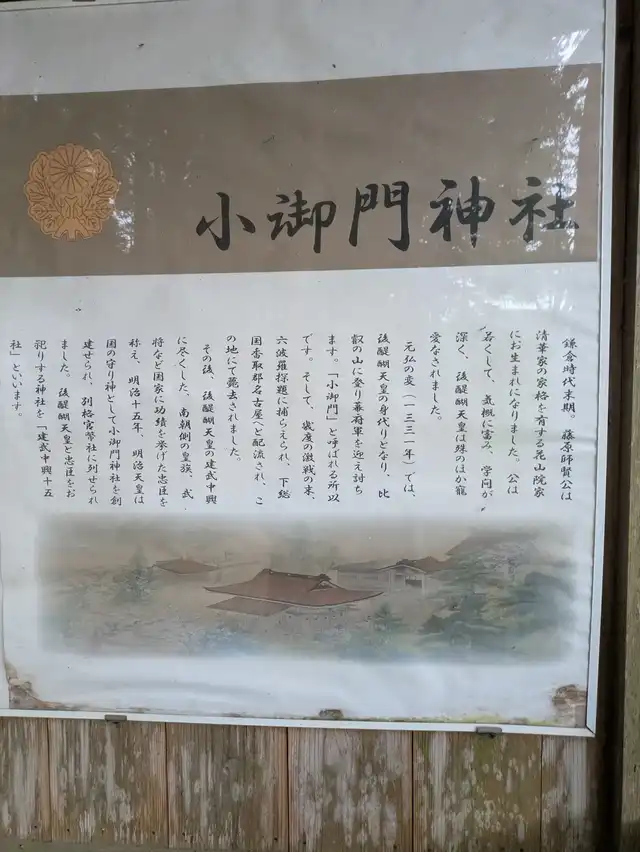 小御門神社
鎌倉時代末期、藤原師賢公は
清華家の家格を有する花山院家
にお生まれになりました。公は
若くして、気概に富み、学問が
深く、後醍醐天皇は殊のほか寵
愛なされました。
元弘の変（一三三一年）では、
後醍醐天皇の身代りとなり、比
叡の山に登り幕府軍を迎え討ち
ます。「小御門」と呼ばれる所以
です。そして、幾度の激戦の末、
六波羅探題に捕らえられ、下総
国香取郡名古屋へと配流され、こ
の地にて薨去されました。
その後、後醍醐天皇の建武中興
に尽くした、南朝側の皇族、武
将など国家に功績を挙げた忠臣を
称え、明治十五年、明治天皇は
国の守り神として小御門神社を創
建せられ、別格官幣社に列せられ
ました。後醍醐天皇と忠臣をお
祀りする神社を「建武中興十五
社」といいます。